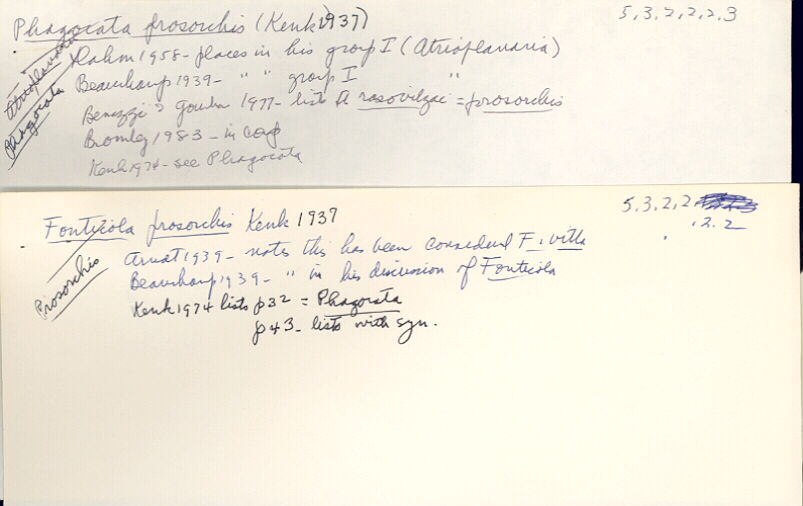 Phagocata prosorchis (Kenk 1937)
5,3,2,2,2,3
Atrioplanaria
Phagocata
Dahm 1958 - places in his group I (Atrioplanaria)
Beauchamp 1939 - " " group I "
Benazzi & Gourbault 1977 - lists racovitzai = prosorchis
Bromley 1983 - in
Kenk 1974 - see Phagocata
Fonticola prosorchis Kenk 1937
5,3,2,2
.2.2
Prosorchis
Arndt 1939 - notes this has been considered F. vitta
Beauchamp 1939 - " in his discussion of Fonticola
Kenk 1974 lists p32 = Phagocata
p43 - lists with syn.